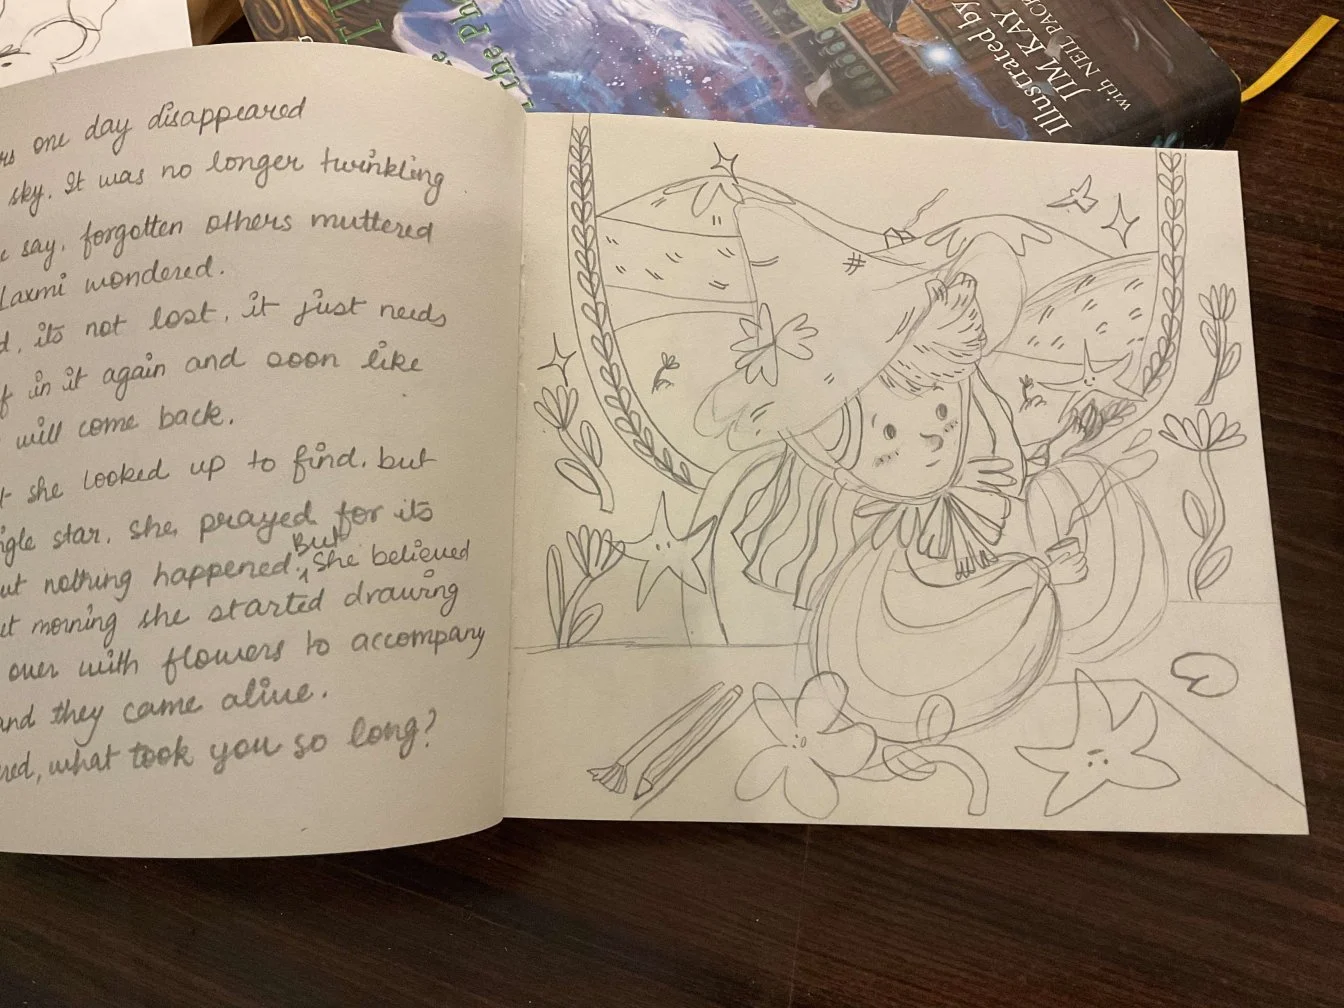 Illustrated by
JIM KAY
with NEIL PACK
the Ph
one day disappeared
sky. It was no longer twinkling
say. forgotten others muttered
Laxmi wondered.
its not lost. it just needs
in it again and soon like
will come back.
she looked up to find. but
star. she prayed for its
but nothing happened. But she believed
morning she started drawing
over with flowers to accompany
and they came alive.
what took you so long?